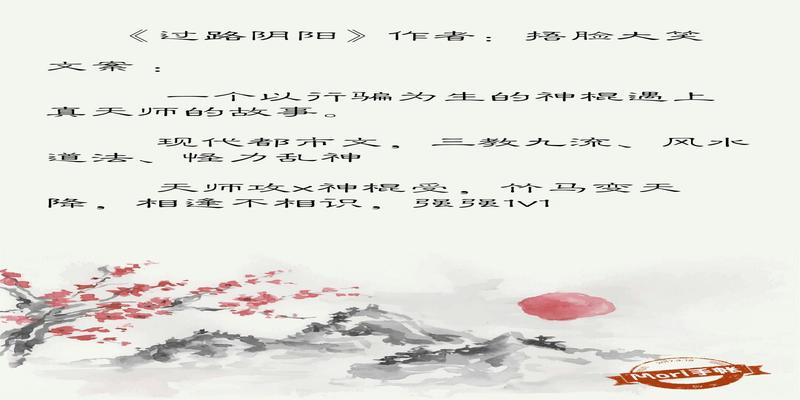 《过路阴阳》作者：捂脸大笑
文案：
一个以行骗为生的神棍遇上
真天师的故事。
现代都市文，三教九流、风水
道法、怪力乱神
天师攻x神棍受，竹马变天
降，相逢不相识，强强1v1
Mori手帐